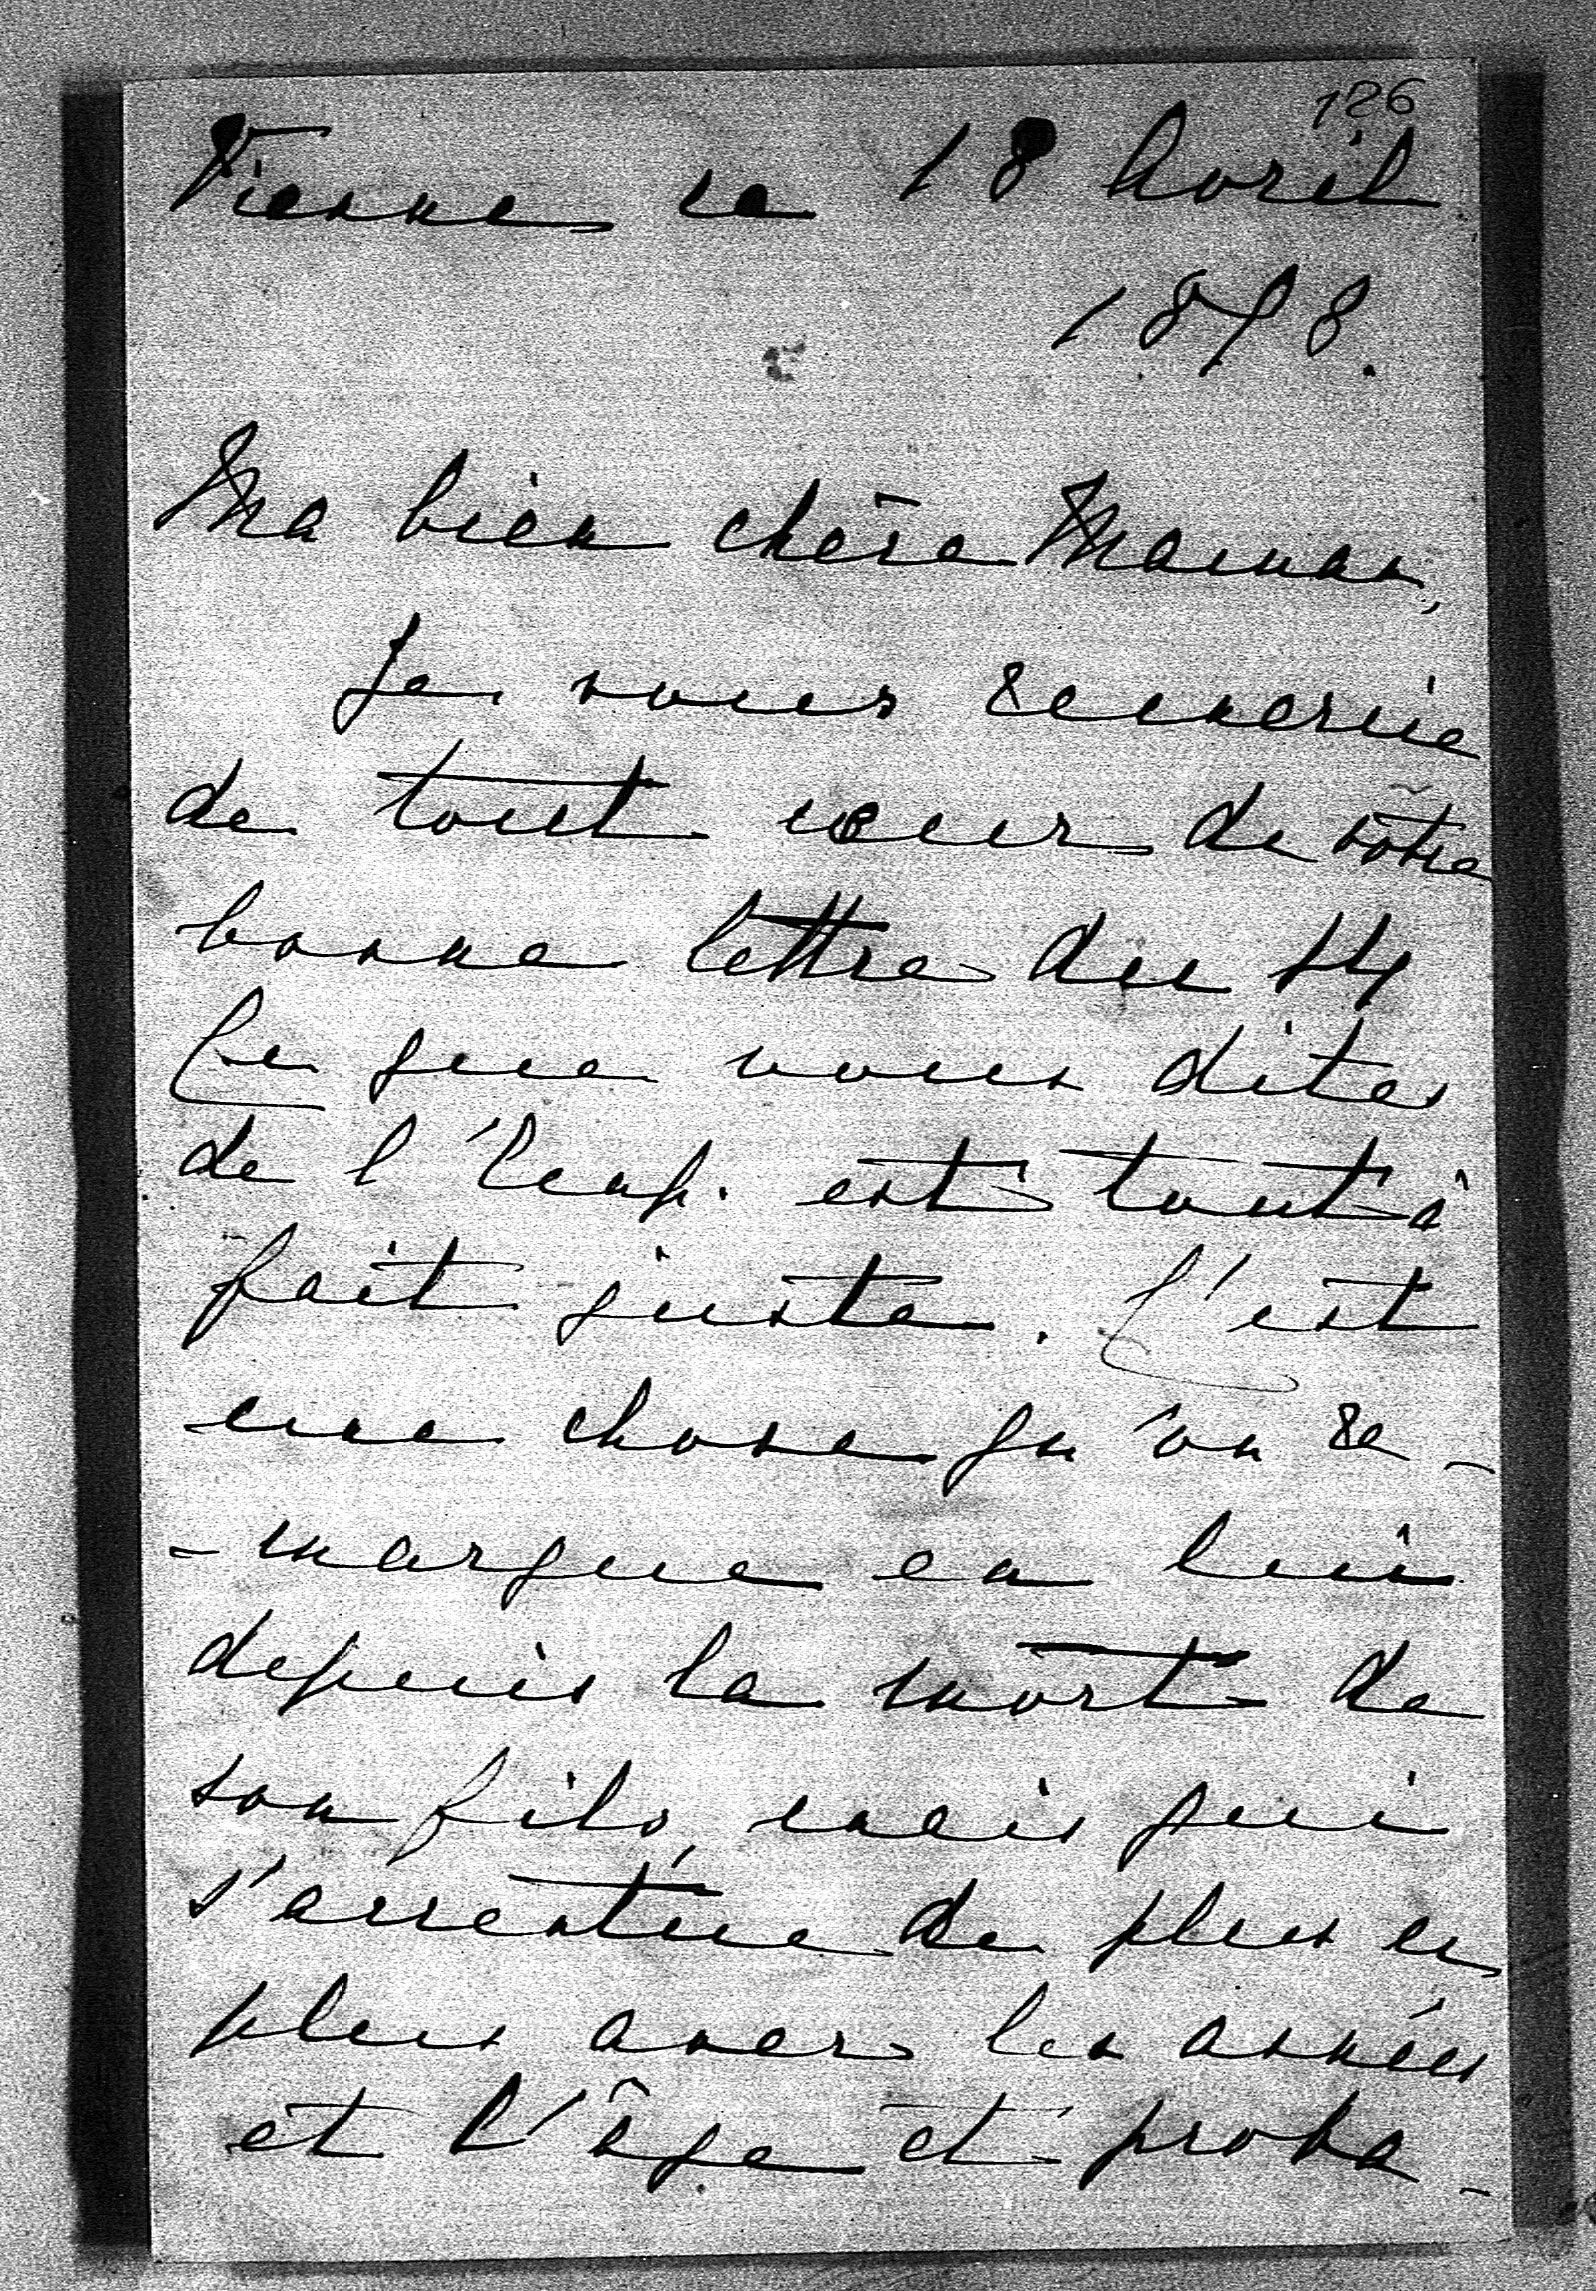 126
Vienne ce 18 Avril
1898.
Ma bien chère Maman,
Je vous remercie
de tout cœur de votre
bonne lettre du 14
Ce que vous dites
de l'Emp. est tout à
fait juste. C'est
une chose qu'on re-
-marque en lui
depuis la mort de
son fils, mais qui
s'accentue de plus en
plus avec les années
et l'âge et proba-